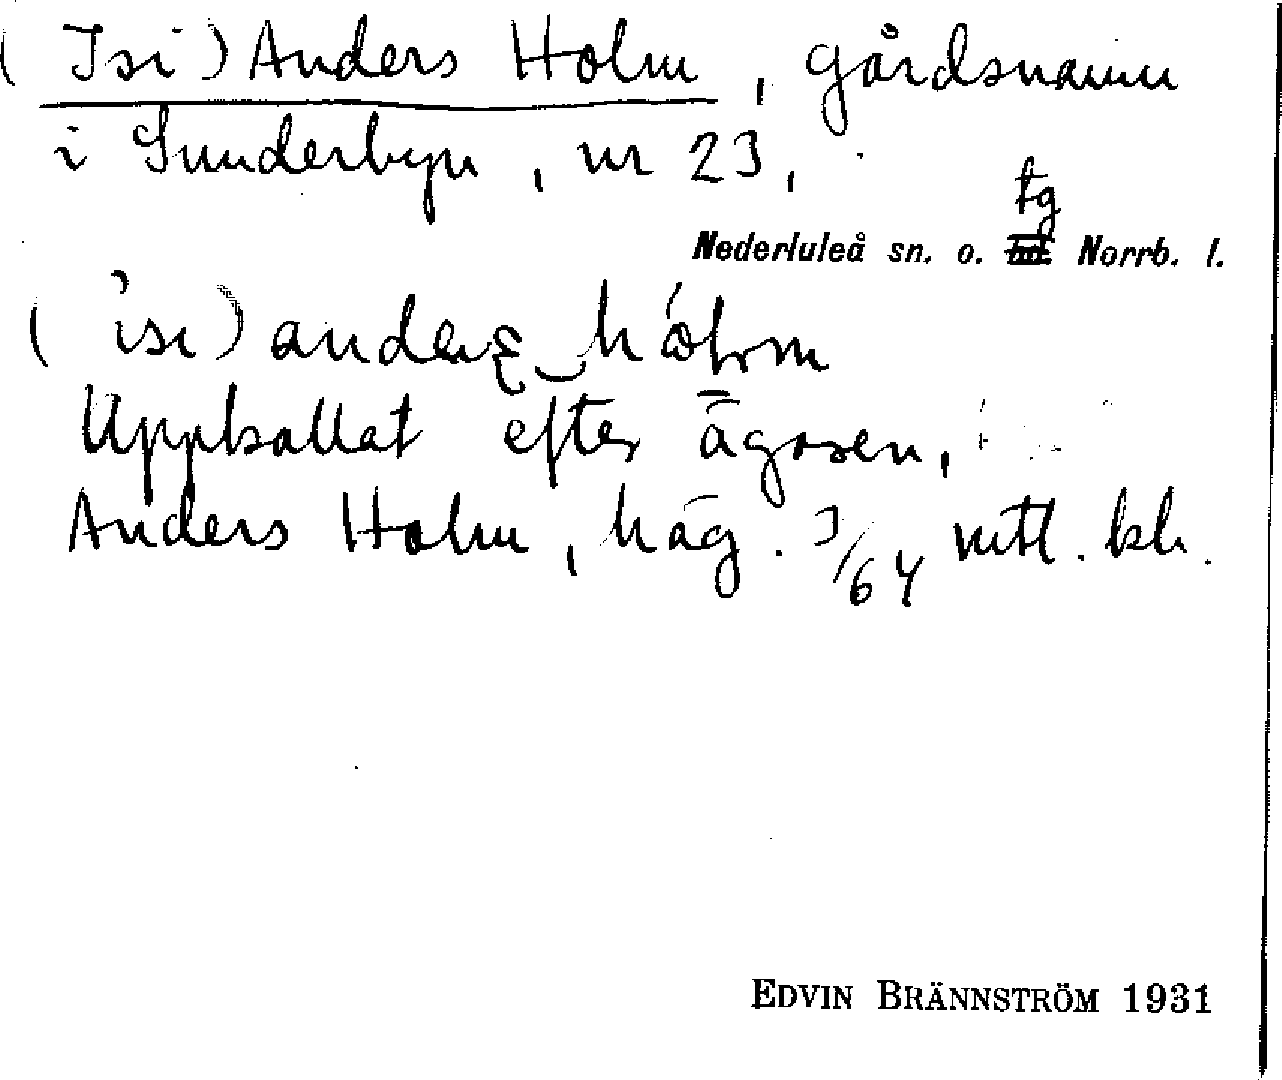 (Isi) Anders Holm, gårdsnamn
i Sunderbyn, nr 23,
tg
Nederluleå sn. o. hd. Norrb. l.
Uppkallat efter ägaren,
Anders Holm, häg. 3/64 mtl. kr.
EDVIN BRÄNNSTRÖM 1931